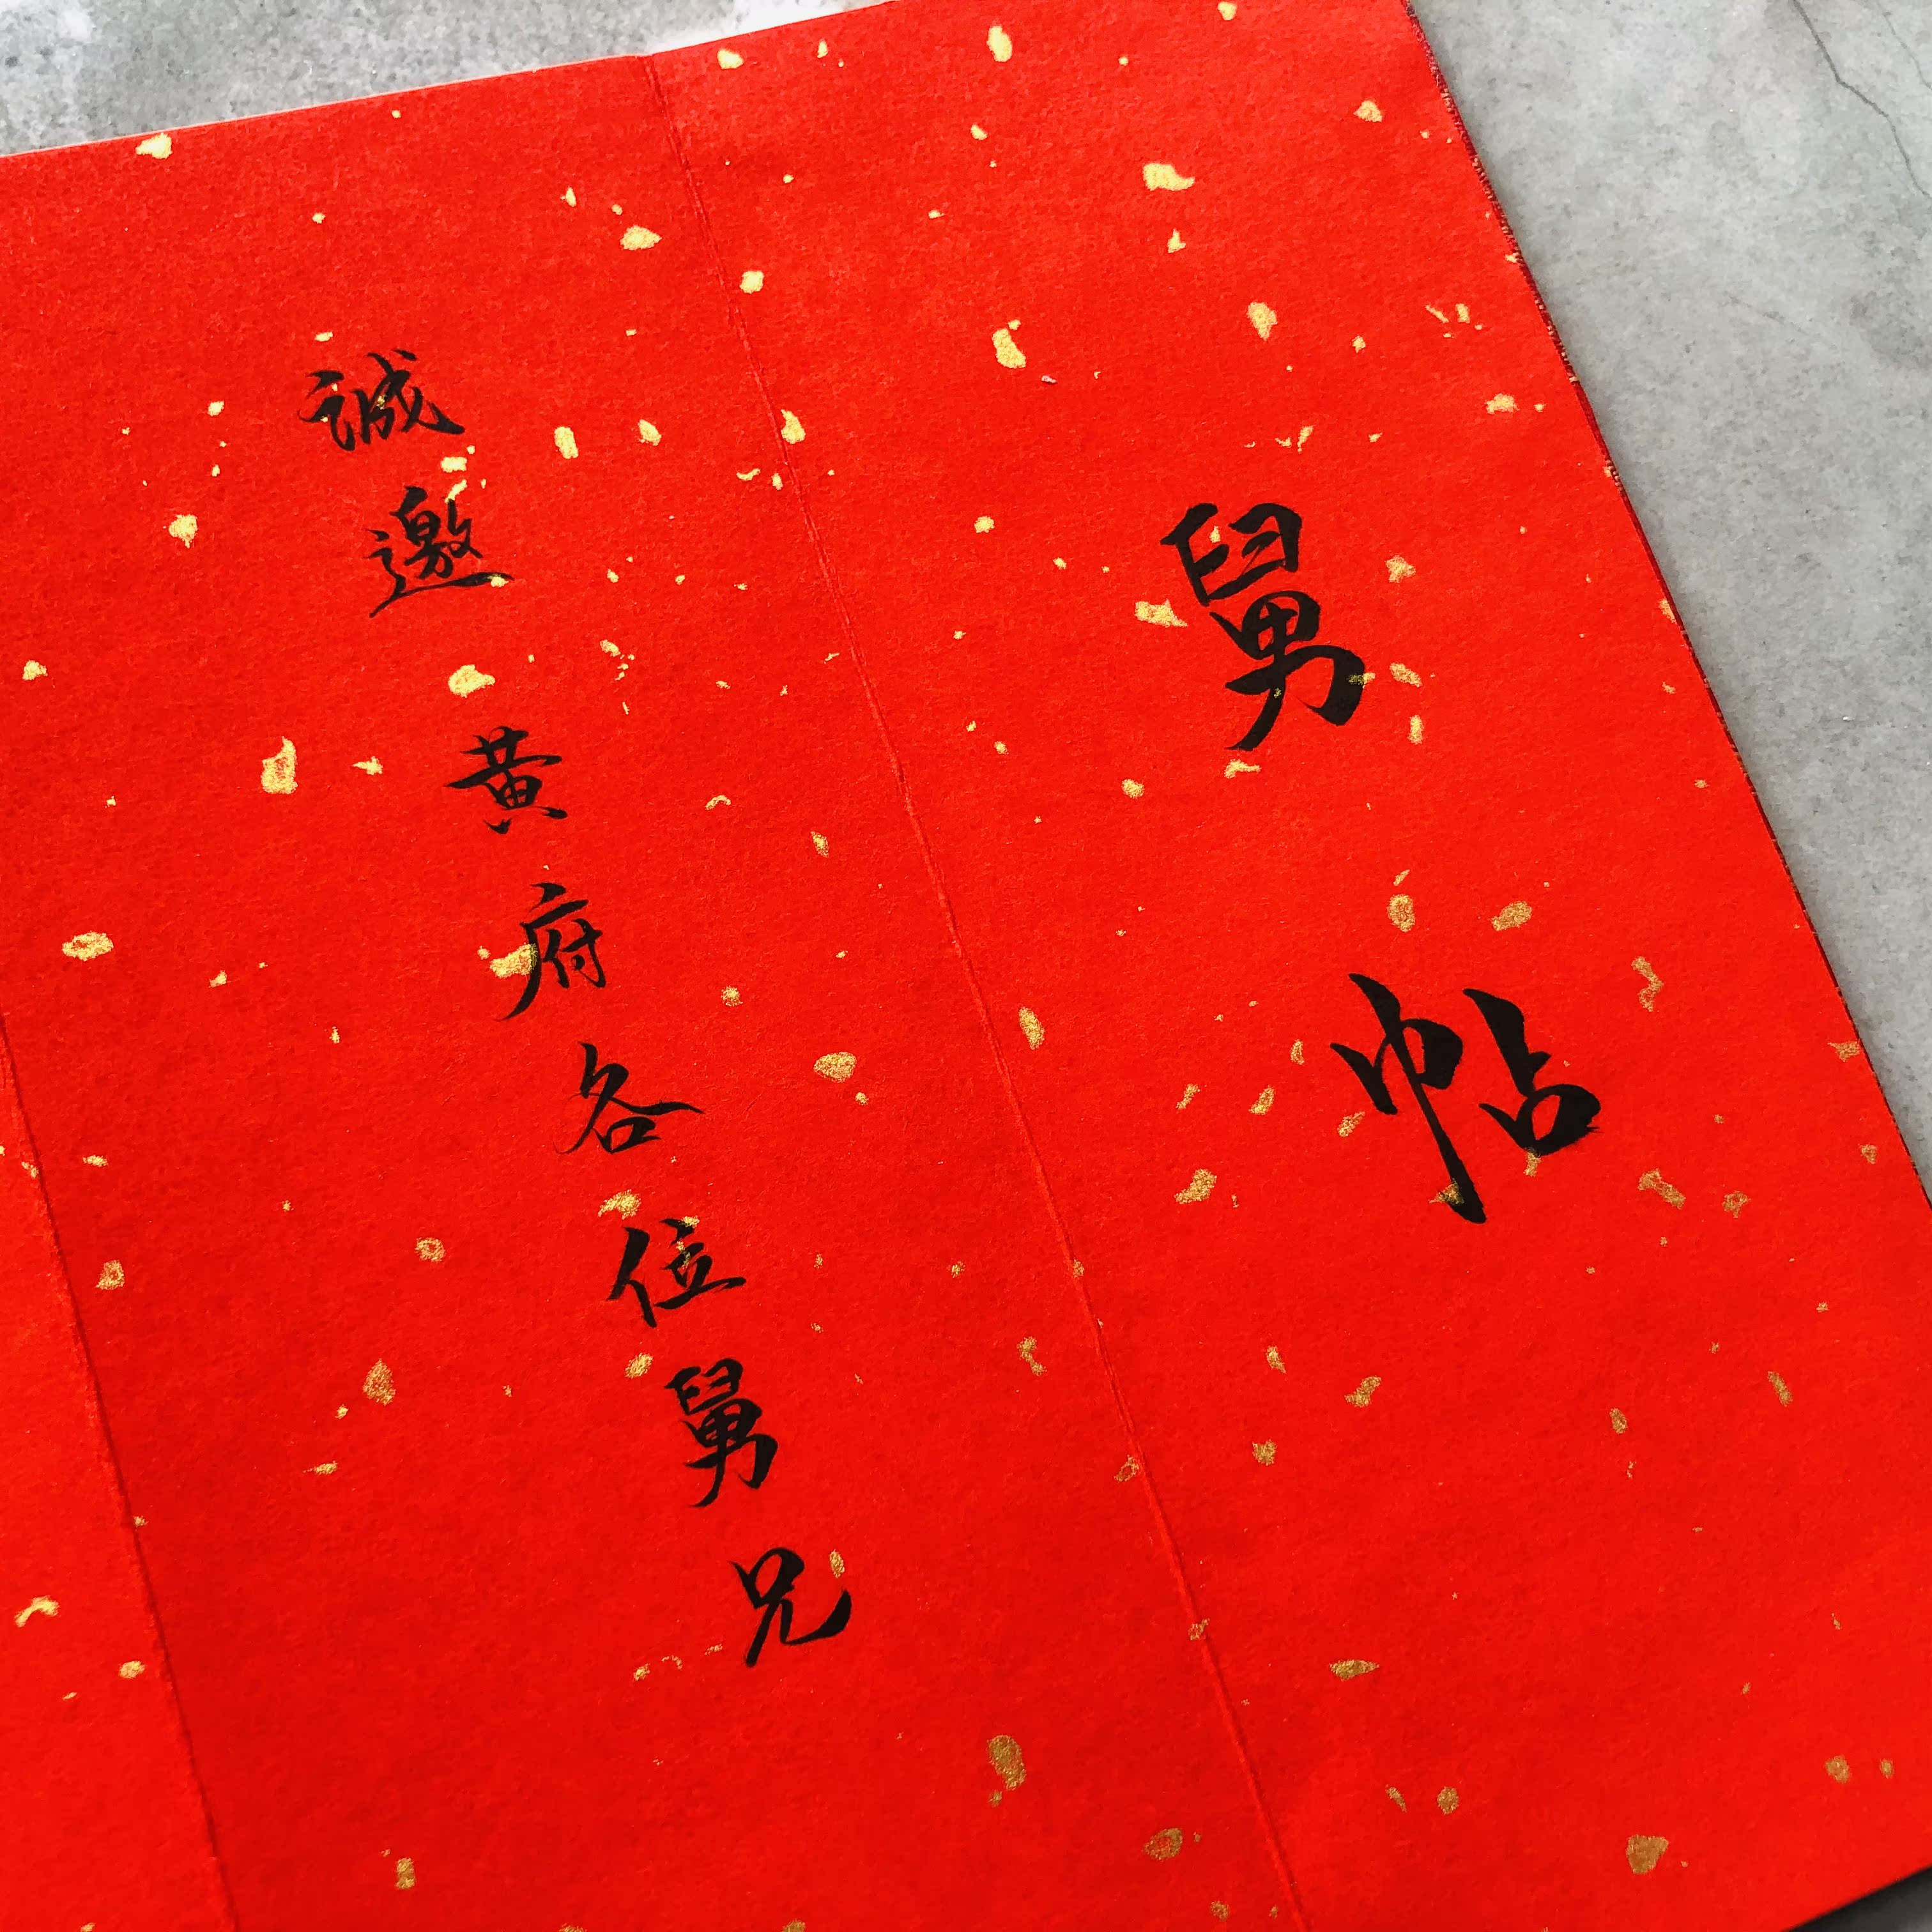 舅帖
誠邀 黄府各位舅兄